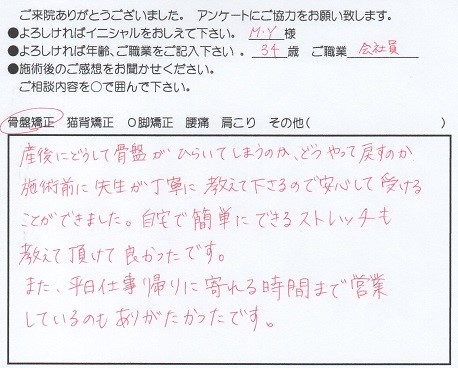 ご来院ありがとうございました。 アンケートにご協力をお願い致します。
●よろしければイニシャルをおしえて下さい。 M・Y 様
●よろしければ年齢、ご職業をご記入下さい 。 34 歳 ご職業 会社員
●施術後のご感想をお聞かせください。
ご相談内容を○で囲んで下さい。
骨盤矯正 猫背矯正 O脚矯正 腰痛 肩こり その他( )
産後にどうして骨盤がひらいてしまうのか、どうやって戻すのか
施術前に先生が丁寧に教えて下さるので安心して受ける
ことができました。自宅で簡単にできるストレッチも
教えて頂けて良かったです。
また、平日仕事帰りに寄れる時間まで営業
しているのもありがたかったです。